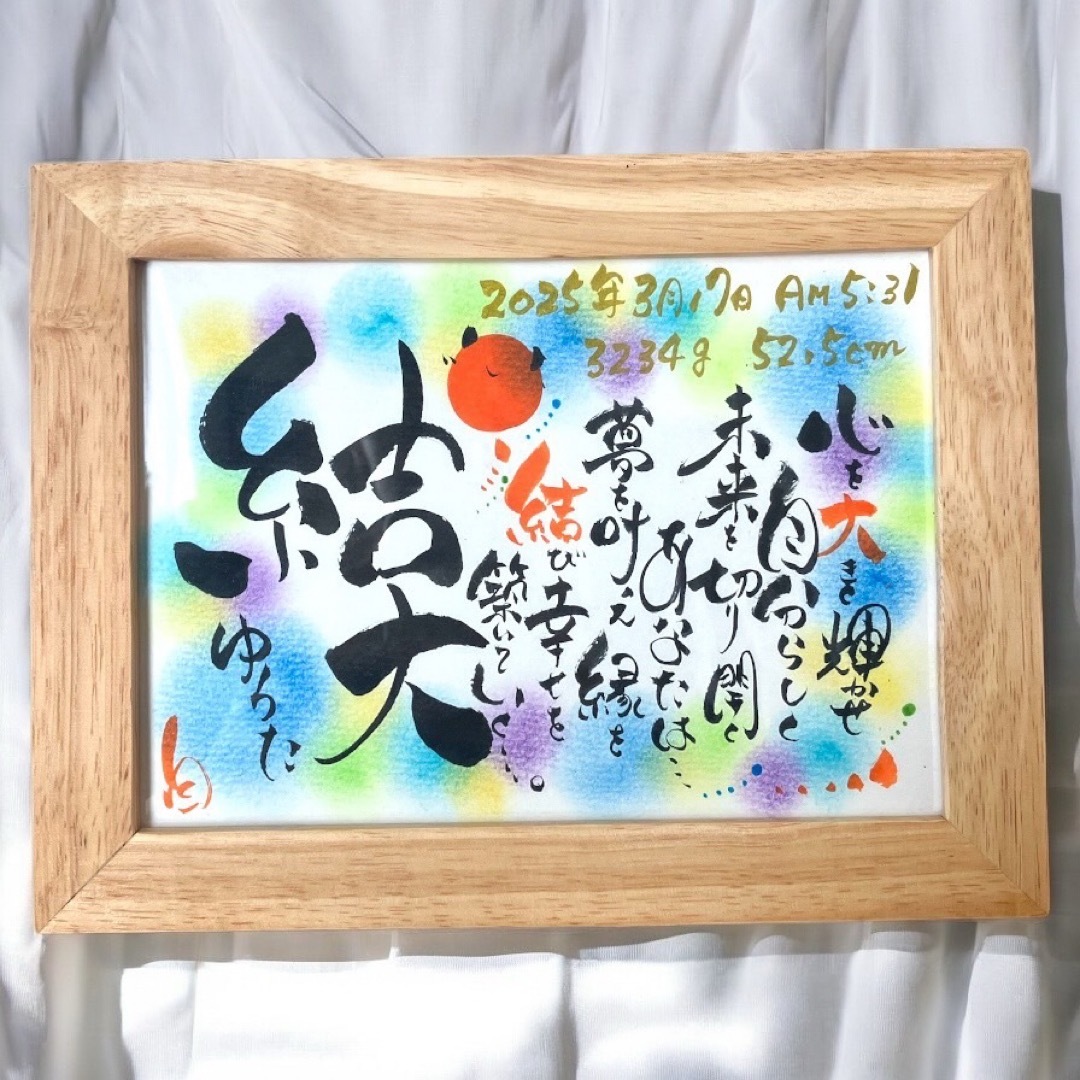 2025年3月17日 AM5:31
3234g 52.5cm
心を大きき輝かせ
自分らしく
未来を切り開く
あなたは…
夢を叶え縁を
結び幸せを
築いていく…。
結大
ゆうた